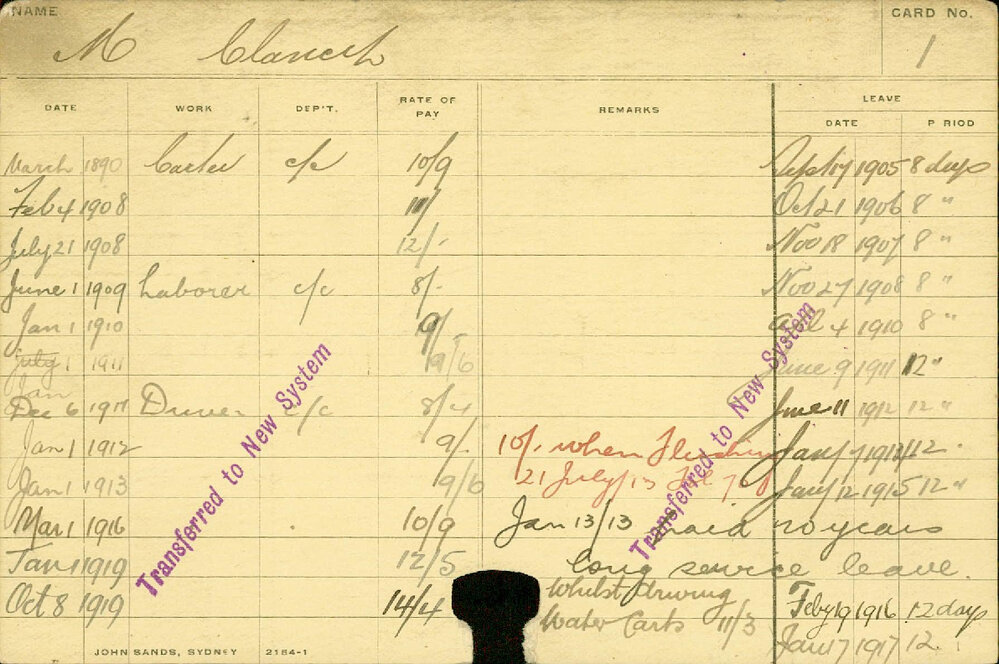 NAME
CARD No.
M Clanesh
1
DATE WORK DEP'T. RATE OF PAY REMARKS LEAVE
DATE P RIOD
March 1890 Carter c/c 10/9 Sept 17 1905 8 days
Feb 4 1908 11/ Oct 21 1906 8 "
July 21 1908 12/- Nov 18 1907 8 "
June 1 1909 Laborer c/c 8/- Nov 27 1908 8 "
Jan 1 1910 9/ 4 1910 8 "
July 1 1911 9/6 June 9 1911 12 "
Jan
Dec 6 1911 Driver c/c 8/4 June 11 1912 12 "
Jan 1 1912 9/- 10/- when Jany 7 12 "
Jan 1 1913 9/6 21 July/13 Jany 12 1915 12 "
Mar 1 1916 10/9 Jan 13/13 paid 20 years
Jan 1 1919 12/5 long service leave.
Oct 8 1919 14/4 Whilst driving Feby 19 1916 12 days
Water Carts 11/3 Jan 17 1917 12 "
Transferred to New System
Transferred to New System
JOHN SANDS, SYDNEY 2184-1